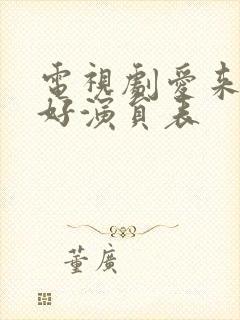 電視劇愛來
好演員表
董廣